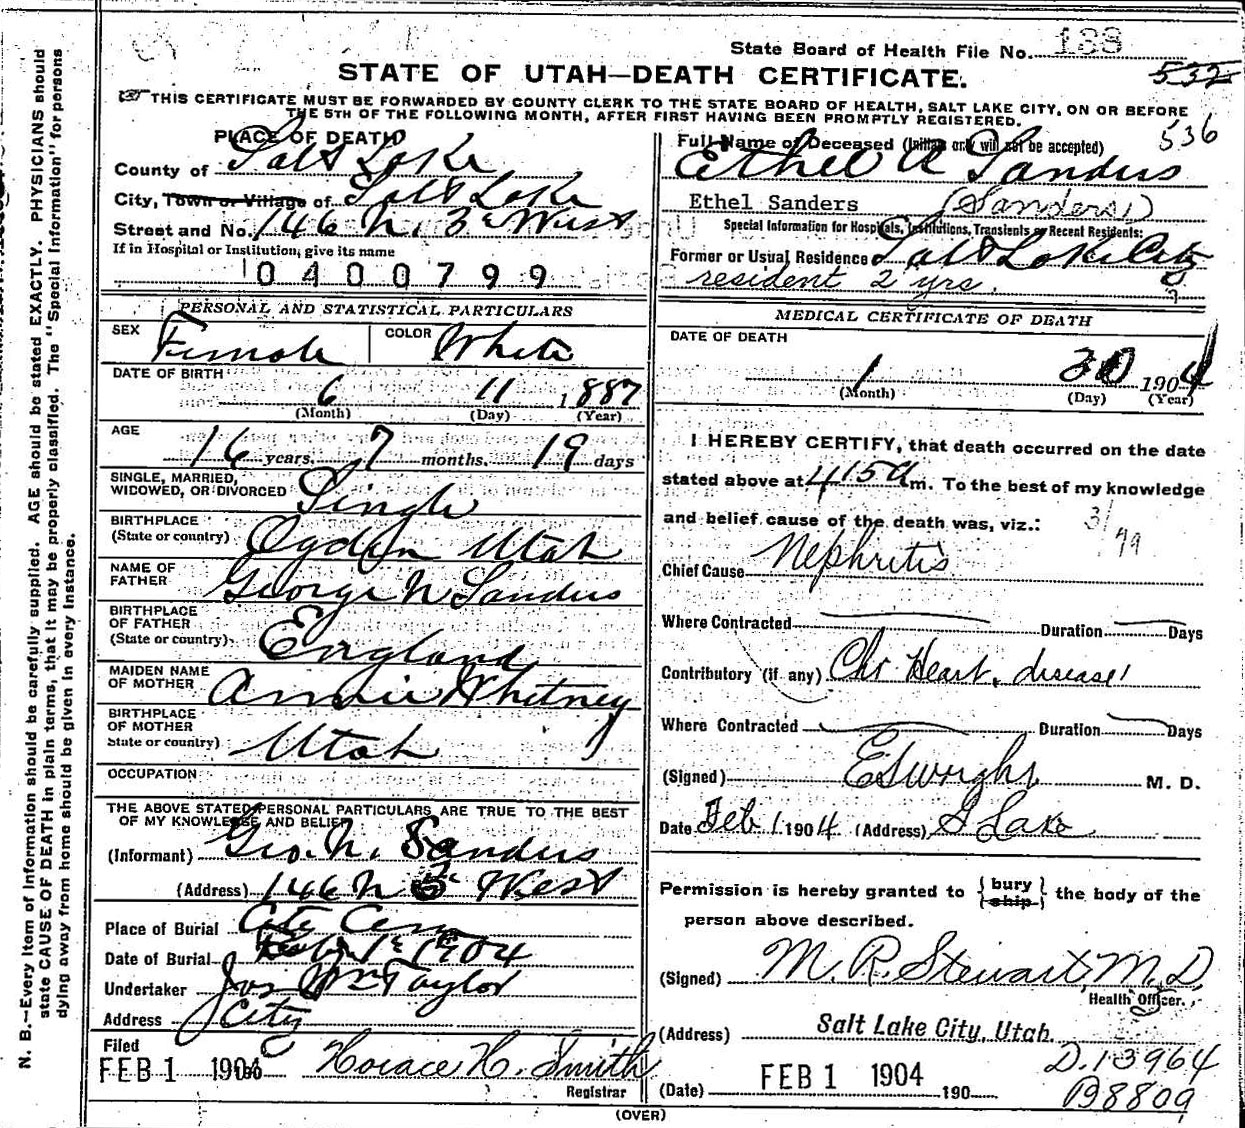 State Board of Health File No. 138
STATE OF UTAH—DEATH CERTIFICATE.
532
THIS CERTIFICATE MUST BE FORWARDED BY COUNTY CLERK TO THE STATE BOARD OF HEALTH, SALT LAKE CITY, ON OR BEFORE
THE 5TH OF THE FOLLOWING MONTH, AFTER FIRST HAVING BEEN PROMPTLY REGISTERED.
536
N. B.—Every item of information should be carefully supplied. AGE should be stated EXACTLY. PHYSICIANS should
state CAUSE OF DEATH in plain terms, that it may be properly classified. The "Special Information" for persons
dying away from home should be given in every instance.
PLACE OF DEATH
County of Salt Lake
City, Town or Village of Salt Lake
Street and No. 146 N. 3d West
If in Hospital or Institution, give its name
0400799
PERSONAL AND STATISTICAL PARTICULARS
SEX Female COLOR White
DATE OF BIRTH
6 11 1887
(Month) (Day) (Year)
AGE
16 years, 7 months, 19 days
SINGLE, MARRIED,
WIDOWED, OR DIVORCED Single
BIRTHPLACE
(State or country) Ogden Utah
NAME OF
FATHER George N Sanders
BIRTHPLACE
OF FATHER
(State or country) England
MAIDEN NAME
OF MOTHER Annie Whitney
BIRTHPLACE
OF MOTHER
State or country) Utah
OCCUPATION
THE ABOVE STATED PERSONAL PARTICULARS ARE TRUE TO THE BEST
OF MY KNOWLEDGE AND BELIEF
(Informant) Geo. N. Sanders
(Address) 146 N 3d West
Place of Burial City Cem
Date of Burial Feb 1st 1904
Undertaker Jos Wm Taylor
Address City
Filed
FEB 1 1904 Horace H. Smith
Registrar
Full Name of Deceased (Initials only will not be accepted)
Ethel A Sanders
Ethel Sanders (Sanders)
Special Information for Hospitals, Institutions, Transients or Recent Residents:
Former or Usual Residence Salt Lake City
resident 2 yrs.
MEDICAL CERTIFICATE OF DEATH
DATE OF DEATH
1 30 1904
(Month) (Day) (Year)
I HEREBY CERTIFY, that death occurred on the date
stated above at 4 15 a m. To the best of my knowledge
and belief cause of the death was, viz.:
Chief Cause Nephritis
Where Contracted Duration Days
Contributory (if any) Chr Heart disease
Where Contracted Duration Days
(Signed) ES Wright M. D.
Date Feb 1 1904 (Address) S Lake
Permission is hereby granted to {bury ship} the body of the
person above described.
(Signed) M. R. Stewart, M.D.
Health Officer.
(Address) Salt Lake City, Utah.
D.13964
(Date) FEB 1 1904 190
B8809
(OVER)